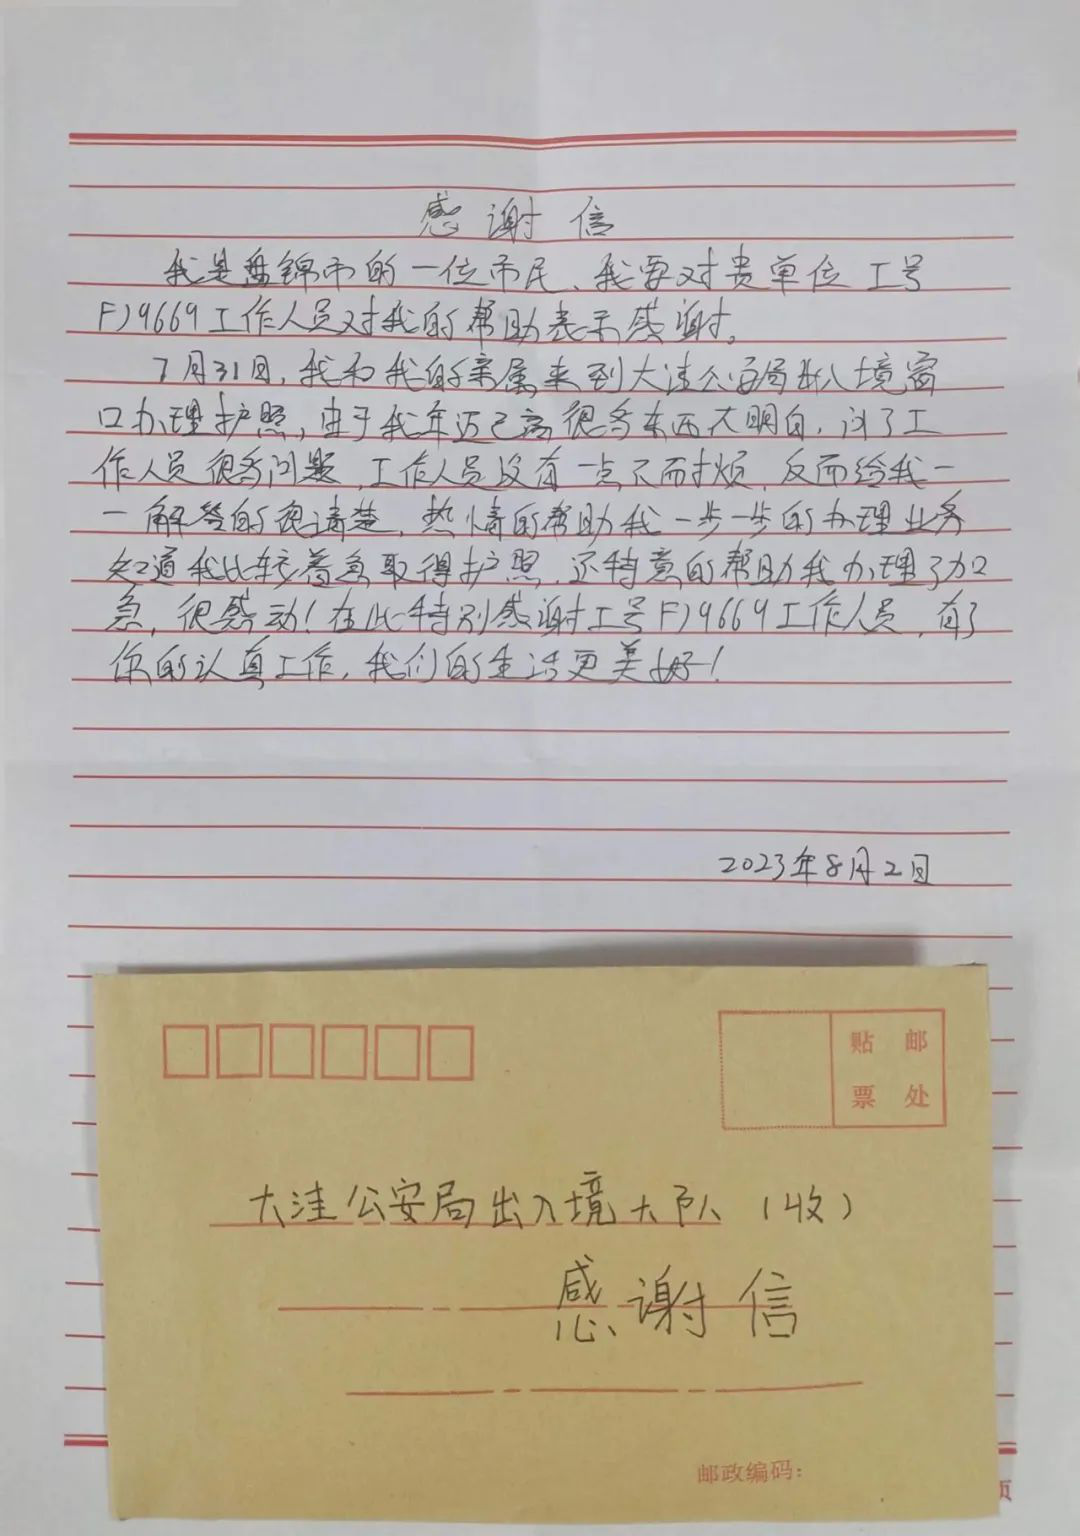 感谢信
我是盘锦市的一位市民、我要对贵单位工号
FJ9669工作人员对我的帮助表示感谢。
7月31日,我和我的亲属来到大洼公安局出入境窗
口办理护照,由于我年迈已高很多东西大明白,问了工
作人员很多问题,工作人员没有一点不耐烦,反而给我一
一解答的很清楚,热情的帮助我一步一步的办理业务
知道我比较着急取得护照,还特意的帮助我办理了加
急,很感动!在此特别感谢工号FJ9669工作人员,有了
你的认真工作,我们的生活更美好!
2023年8月2日
贴邮
票处
大洼公安局出入境大队(收)
感谢信
邮政编码:
页